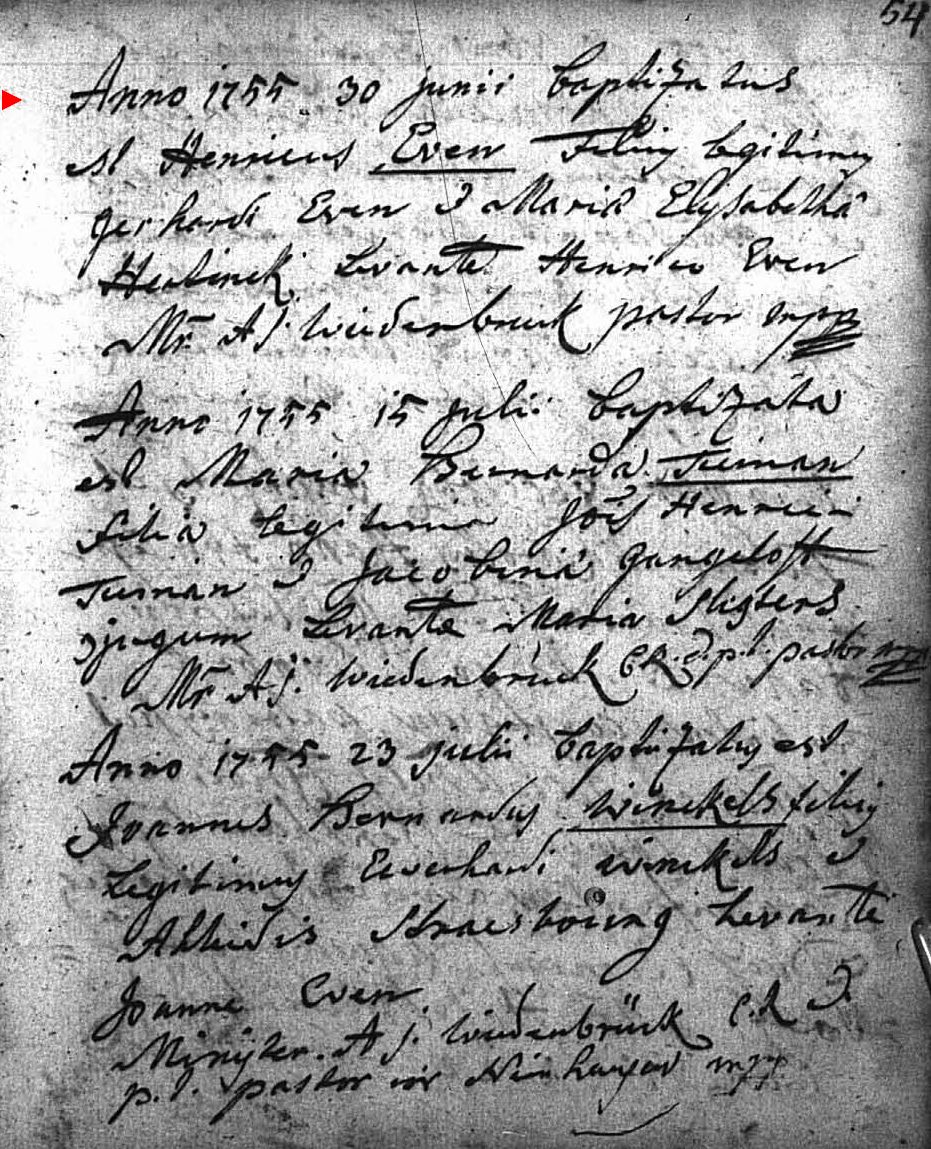 54
Anno 1755 30 junii baptizatus
est Henricus Even Filius legitimus
gerhardi Even & Mariæ Elysabethæ
Hertinck Levante Henrico Even
Mr A J. Wiedenbruck pastor mpp
Anno 1755 15 julii baptizata
est Maria Bernarda Tuman
filia legitima Jois Henrici
Tuman & Jacobinæ gangeloft
jugum Levante Maria Sligters
Mr A J. Wiedenbrück C.R. & p.t. pastor mpp
Anno 1755 23 julii baptizatus est
Joannes Bernardus Winckels filius
Legitimus Everhardi winckels &
Alheidis Kraesboing Levante
Joanne Even
Minister. A J. Wiedenbrück C.R &
p.t. pastor in Nienhausen mpp